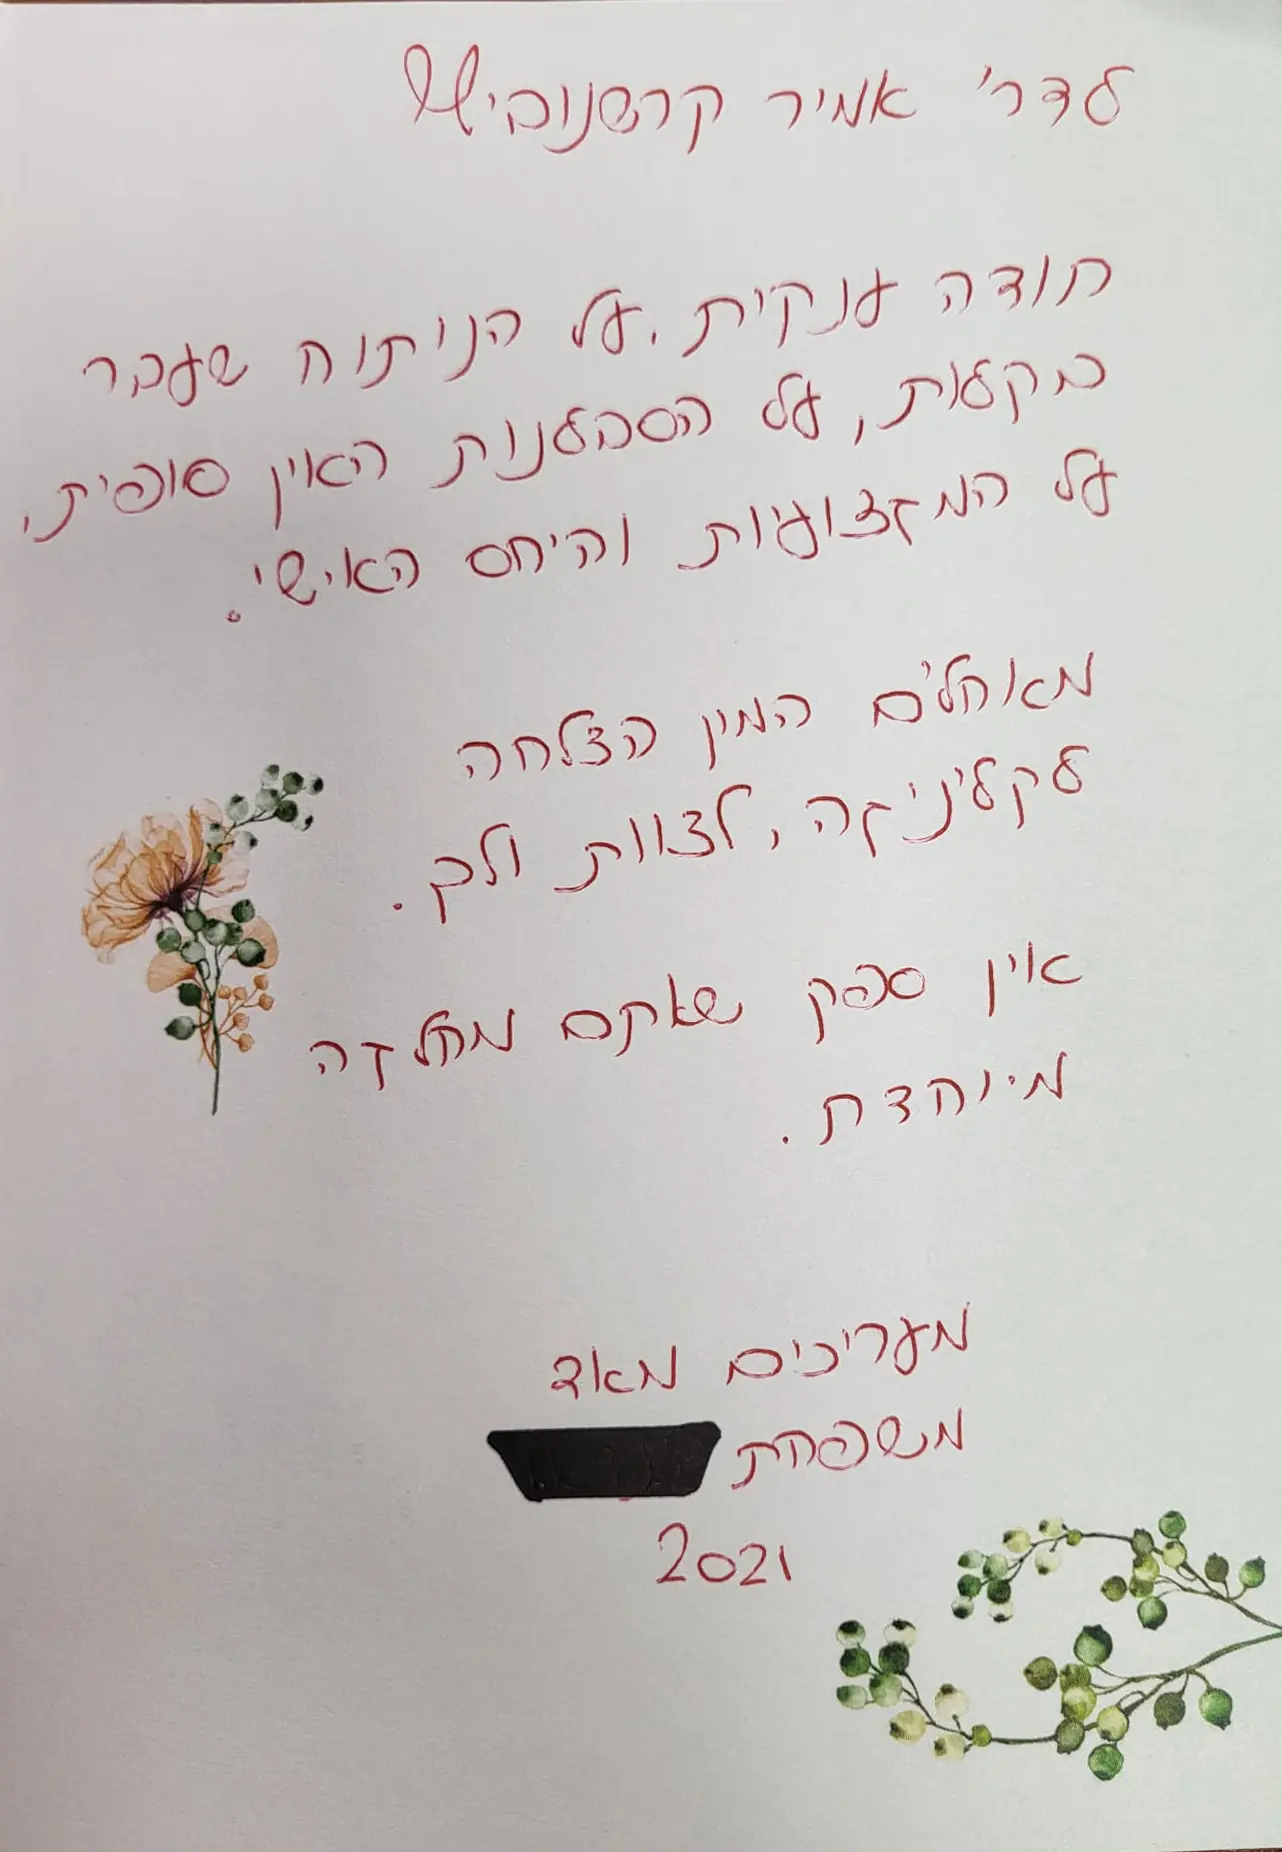 לדר' אמיר קרשנוביץ
תודה ענקית. על הניתוח שעבר
בקלות, על הסבלנות האין סופית,
על המקצועיות והיחס האישי.
מאחלים המון הצלחה
לקליניקה, לצוות ולך.
אין ספק שאתם מחלקה
מיוחדת.
מעריכים מאד
משפחת
2021